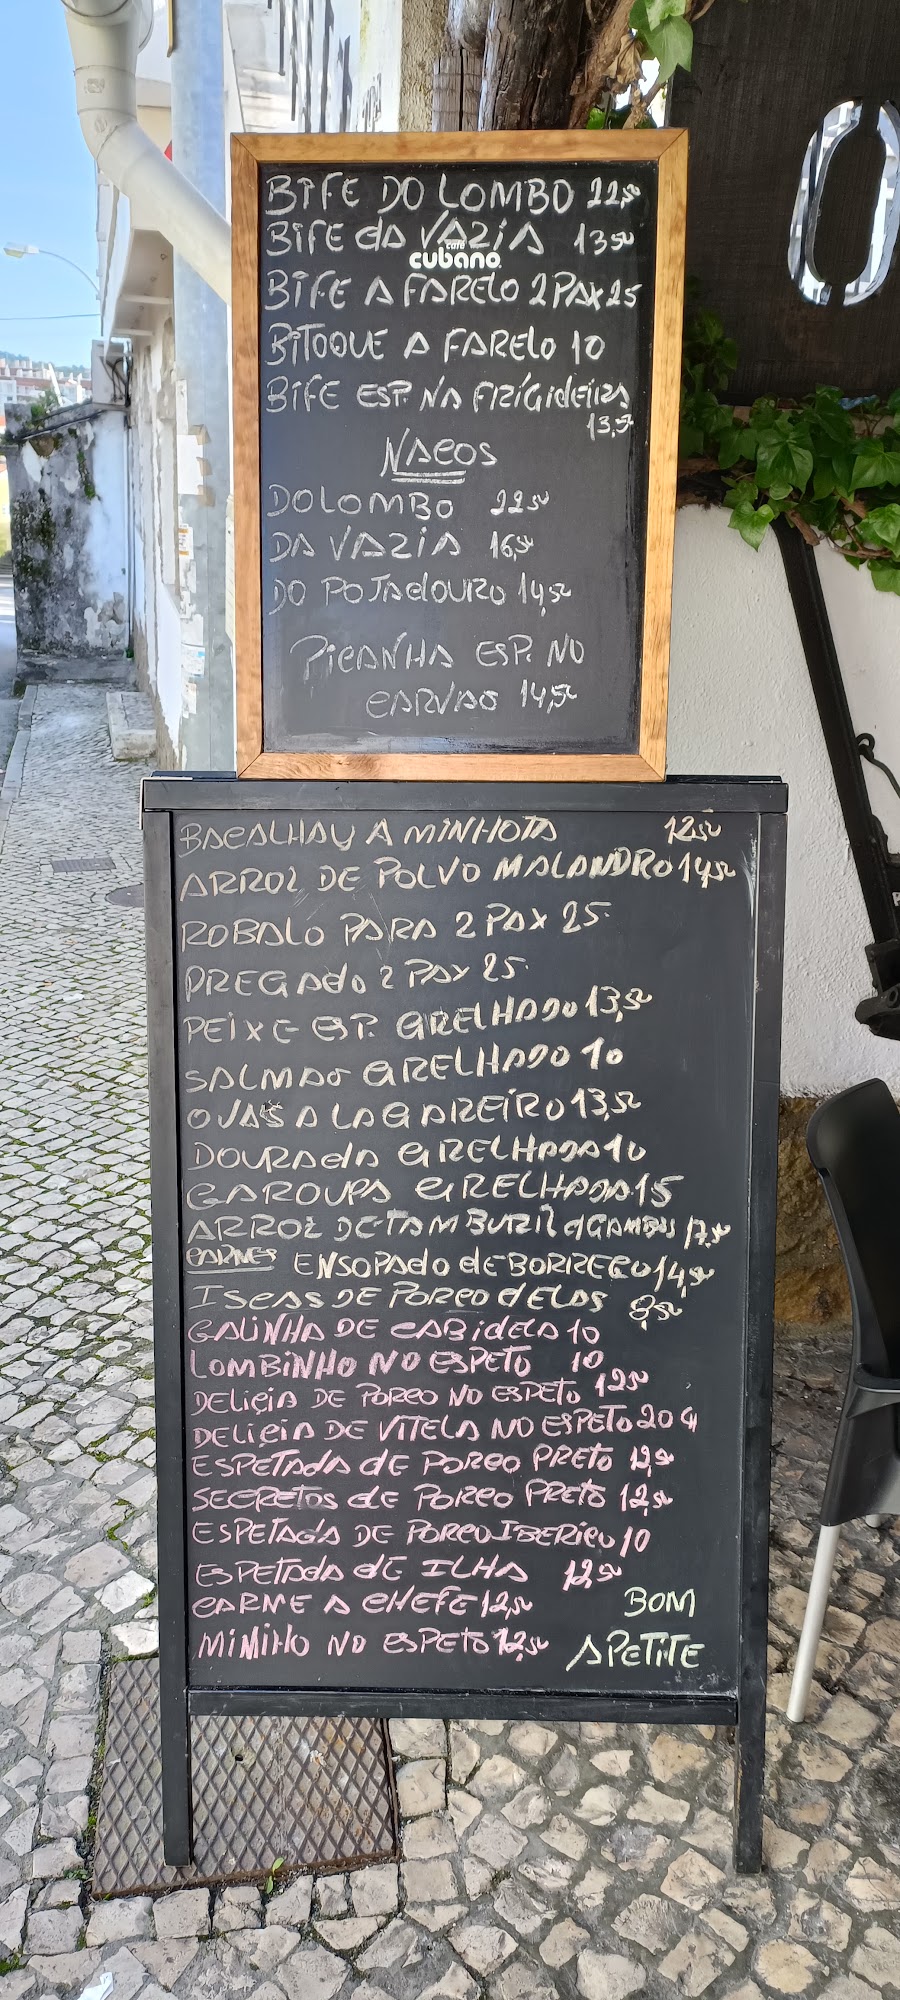 BIFE DO LOMBO 22,50
BIFE dA VAZIA 13,50
café
cubano
BIFE A FARELO 2 PAX 25
BITOQUE A FARELO 10
BIFE ESP. NA FRÍGIdEIRA
13,50
NACOS
DO LOMBO 22,50
DA VAZIA 16,50
DO POJAdOURO 14,50
PICANHA ESP. NO
CARVAO 14,50
BACALHAU A MINHOTA 12,50
ARROZ DE POLVO MALANDRO 14,50
ROBALO PARA 2 PAX 25
PREGAdO 2 PAX 25
PEIXE ESP. GRELHADO 13,50
SALMAO GRELHADO 10
OVAS A LAGAREIRO 13,50
DOURAdA GRELHADA 10
GAROUPA GRELHADA 15
ARROZ DE TAMBURIL C GAMBAS 17,50
CARNES ENSOPAdO dE BORREGO 14,50
ISCAS DE PORCO dELAS 8,50
GALINHA DE CABIdELA 10
LOMBINHO NO ESPETO 10
DELICIA DE PORCO NO ESPETO 12,50
DELICIA DE VITELA NO ESPETO 20 €
ESPETADA dE PORCO PRETO 12,50
SECRETOS dE PORCO PRETO 12,50
ESPETADA DE PORCO IBERICO 10
ESPETADA dE ILHA 12,50
CARNE A CHEFE 12,50 BOM
MIMINHO NO ESPETO 12,50 APETITE